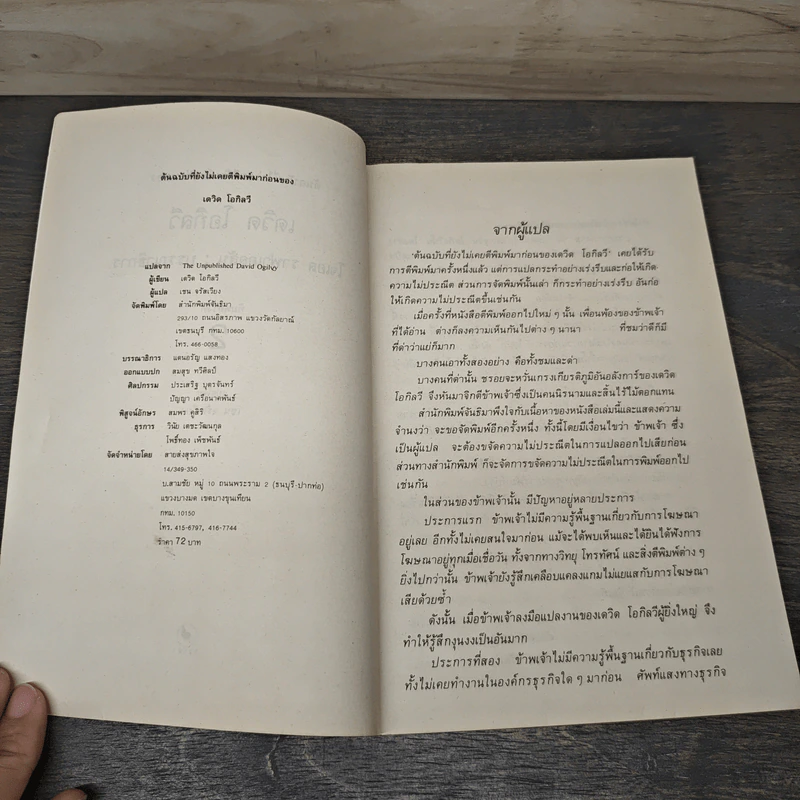 ต้นฉบับที่ยังไม่เคยตีพิมพ์มาก่อนของ
เดวิด โอกิลวี
แปลจาก The Unpublished David Ogilvy
ผู้เขียน เดวิด โอกิลวี
ผู้แปล เชน จรัสเวียง
จัดพิมพ์โดย สำนักพิมพ์จันธิมา
293/10 ถนนอิสรภาพ แขวงวัดกัลยาณ์
เขตธนบุรี กทม. 10600
โทร. 466-0058
บรรณาธิการ แดนอรัญ แสงทอง
ออกแบบปก สมสุข ทวีศิลป์
ศิลปกรรม ประเสริฐ บุตรจันทร์
ปัญญา เครือนาคพันธ์
พิสูจน์อักษร สมพร คูสิริ
ธุรการ วินัย เดชะวัฒนกุล
โพธิ์ทอง เพ็ชพันธ์
จัดจำหน่ายโดย สายส่งสุขภาพใจ
14/349-350
บ.สามชัย หมู่ 10 ถนนพระราม 2 (ธนบุรี-ปากท่อ)
แขวงบางมด เขตบางขุนเทียน
กทม. 10150
โทร. 415-6797, 416-7744
ราคา 72 บาท
จากผู้แปล
'ต้นฉบับที่ยังไม่เคยตีพิมพ์มาก่อนของเดวิด โอกิลวี' เคยได้รับ
การตีพิมพ์มาครั้งหนึ่งแล้ว แต่การแปลกระทำอย่างเร่งรีบและก่อให้เกิด
ความไม่ประณีต ส่วนการจัดพิมพ์นั้นเล่า ก็กระทำอย่างเร่งรีบ อันก่อ
ให้เกิดความไม่ประณีตขึ้นเช่นกัน
เมื่อครั้งที่หนังสือตีพิมพ์ออกไปใหม่ ๆ นั้น เพื่อนพ้องของข้าพเจ้า
ที่ได้อ่าน ต่างก็ลงความเห็นกันไปต่าง ๆ นานา ที่ชมว่าดีก็มี
ที่ด่าว่าแย่ก็มาก
บางคนเอาทั้งสองอย่าง คือทั้งชมและด่า
บางคนที่ด่านั้น ชรอยจะหวั่นเกรงเกียรติภูมิอันอลังการ์ของเดวิด
โอกิลวี จึงหันมาจิกตีข้าพเจ้าซึ่งเป็นคนนิรนามและสิ้นไร้ไม้ตอกแทน
สำนักพิมพ์จันธิมาพึงใจกับเนื้อหาของหนังสือเล่มนี้และแสดงความ
จำนงว่า จะขอจัดพิมพ์อีกครั้งหนึ่ง ทั้งนี้โดยมีเงื่อนไขว่า ข้าพเจ้า ซึ่ง
เป็นผู้แปล จะต้องขจัดความไม่ประณีตในการแปลออกไปเสียก่อน
ส่วนทางสำนักพิมพ์ ก็จะจัดการขจัดความไม่ประณีตในการพิมพ์ออกไป
เช่นกัน
ในส่วนของข้าพเจ้านั้น มีปัญหาอยู่หลายประการ
ประการแรก ข้าพเจ้าไม่มีความรู้พื้นฐานเกี่ยวกับการโฆษณา
อยู่เลย อีกทั้งไม่เคยสนใจมาก่อน แม้จะได้พบเห็นและได้ยินได้ฟังการ
โฆษณาอยู่ทุกเมื่อเชื่อวัน ทั้งจากทางวิทยุ โทรทัศน์ และสิ่งตีพิมพ์ต่าง ๆ
ยิ่งไปกว่านั้น ข้าพเจ้ายังรู้สึกเคลือบแคลงแกมไม่แยแสกับการโฆษณา
เสียด้วยซ้ำ
ดังนั้น เมื่อข้าพเจ้าลงมือแปลงานของเดวิด โอกิลวีผู้ยิ่งใหญ่ จึง
ทำให้รู้สึกงุนงงเป็นอันมาก
ประการที่สอง ข้าพเจ้าไม่มีความรู้พื้นฐานเกี่ยวกับธุรกิจเลย
ทั้งไม่เคยทำงานในองค์กรธุรกิจใด ๆ มาก่อน ศัพท์แสงทางธุรกิจ